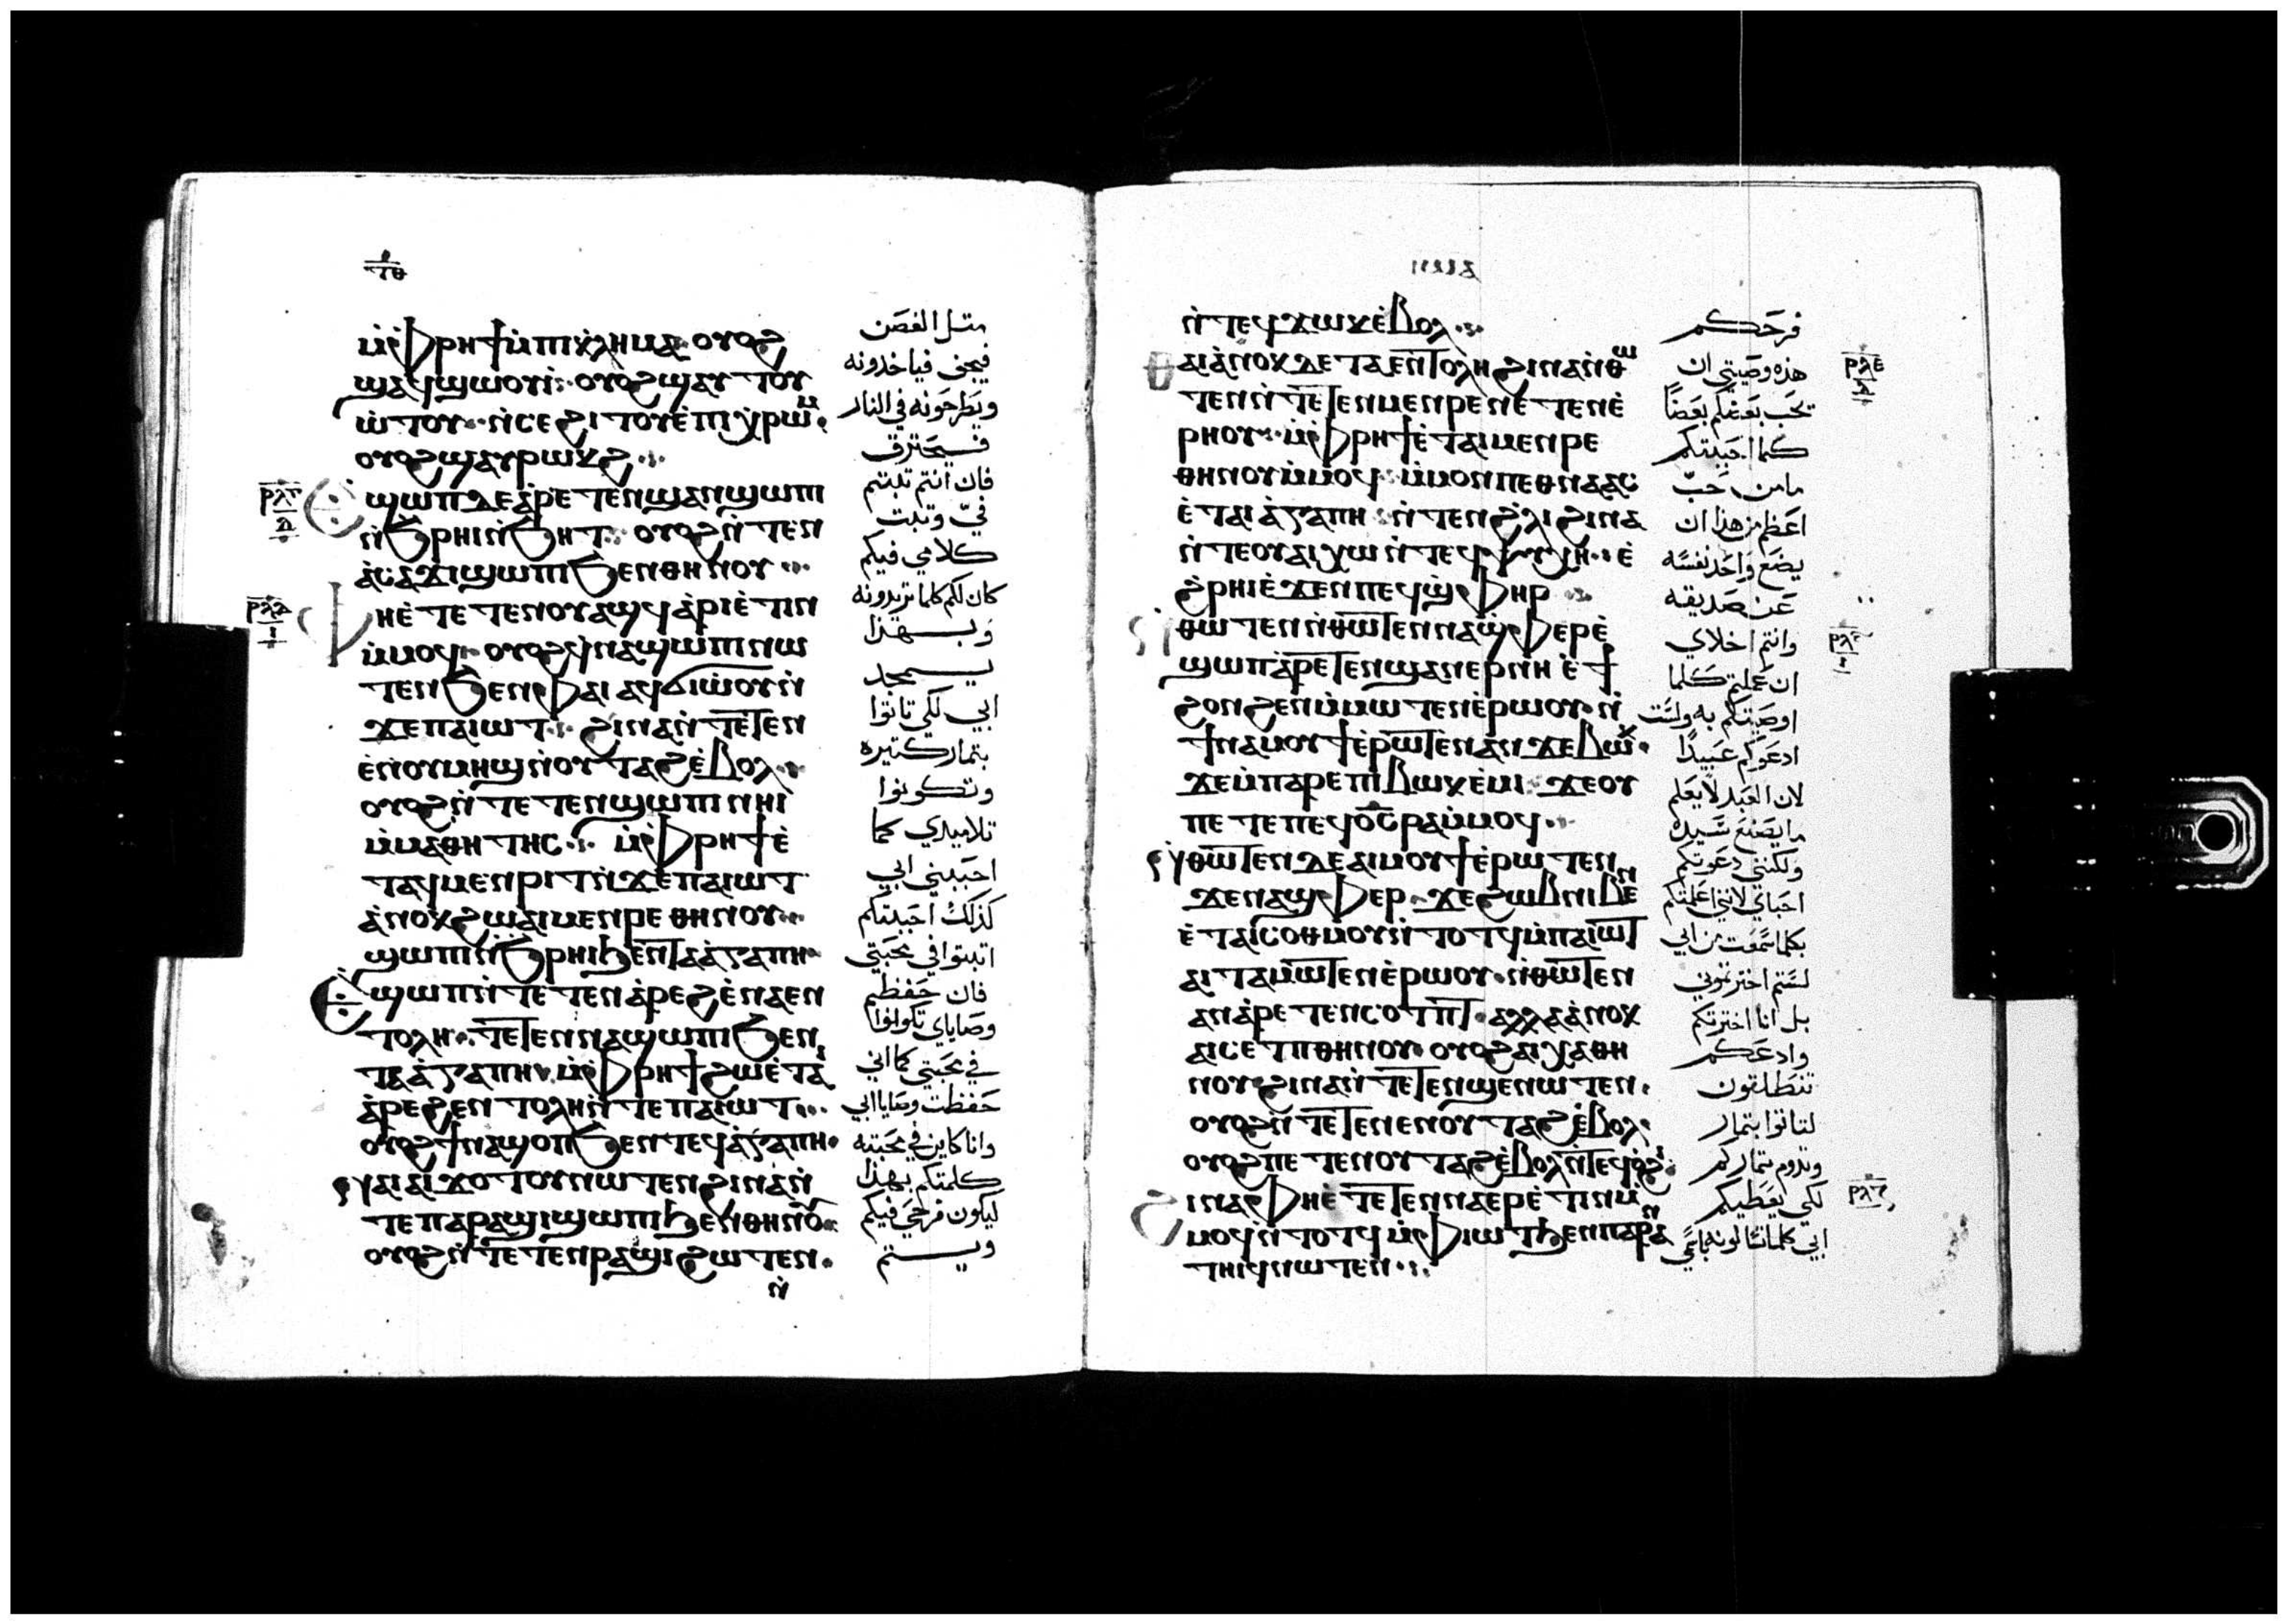 ⲙ̀ⲫⲣⲏϯ ⲙ̀ⲡⲓⲕ̀ⲗⲏⲙⲁ· ⲟⲩⲟϩ
ϣⲁϥϣⲱⲟⲩⲓ̀· ⲟⲩⲟϩ ϣⲁⲩⲑⲟⲩ
ⲱ̀ⲧⲟⲩ· ⲛ̀ⲥⲉϩⲓⲧⲟⲩ ⲉ̀ⲡⲓⲭ̀ⲣⲱⲙ·
ⲟⲩⲟϩ ϣⲁⲩⲣⲱⲕϩ
ϣⲱⲡ ⲇⲉ ⲁ̀ⲣⲉⲧⲉⲛϣⲁⲛϣⲱⲡⲓ
ⲛ̀ϧⲣⲏⲓ ⲛ̀ϧⲏⲧ· ⲟⲩⲟϩ ⲛ̀ⲧⲉⲛ
ⲁ̀ⲥⲁϫⲓ ϣⲱⲡⲓ ϧⲉⲛ ⲑⲏⲛⲟⲩ
ⲫⲏ ⲉ̀ⲧⲉⲧⲉⲛⲟⲩⲁϣϥ ⲁ̀ⲣⲓⲉ̀ⲧⲓⲛ
ⲙ̀ⲙⲟϥ· ⲟⲩⲟϩ ϥ̀ⲛⲁϣⲱⲡⲓ ⲛⲱ
ⲧⲉⲛ ϧⲉⲛ ⲫⲁⲓ ⲁϥϭⲓⲱ̀ⲟⲩ ⲛ̀
ϫⲉ ⲡⲁⲓⲱⲧ· ϩⲓⲛⲁ ⲛ̀ⲧⲉⲧⲉⲛ
ⲉ̀ⲛⲟⲩⲙⲏϣ ⲛ̀ⲟⲩⲧⲁϩ ⲉ̀ⲃⲟⲗ
ⲟⲩⲟϩ ⲛ̀ⲧⲉⲧⲉⲛϣⲱⲡⲓ ⲛⲏⲓ̀
ⲙ̀ⲙⲁⲑⲏⲧⲏⲥ· ⲙ̀ⲫⲣⲏϯ ⲉ̀
ⲧⲁϥⲙⲉⲛⲣⲓⲧ ⲛ̀ϫⲉ ⲡⲁⲓⲱⲧ
ⲁ̀ⲛⲟⲕ ϩⲱ ⲁⲓⲙⲉⲛⲣⲉ ⲑⲏⲛⲟⲩ
ϣⲱⲡⲓ ⲛ̀ϧⲣⲏⲓ ϧⲉⲛ ⲧⲁⲁ̀ⲅⲁⲡⲏ
ϣⲱⲡ ⲛ̀ⲧⲉⲧⲉⲛⲁ̀ⲣⲉϩ ⲉ̀ⲛⲁⲉⲛ
ⲧⲟⲗⲏ· ⲧⲉⲧⲉⲛⲛⲁϣⲱⲡⲓ ϧⲉⲛ
ⲧⲁⲁ̀ⲅⲁⲡⲏ· ⲙ̀ⲫⲣⲏϯ ϩⲱ ⲉ̀ⲧⲁⲓ
ⲁ̀ⲣⲉϩ ⲉⲛⲧⲟⲗⲏ ⲛ̀ⲧⲉ ⲡⲁⲓⲱⲧ
ⲟⲩⲟϩ ϯⲛⲁϣⲟⲡ ϧⲉⲛ ⲧⲉϥⲁ̀ⲅⲁⲡⲏ
ⲛⲁⲓ ⲁⲓϫⲟⲧⲟⲩ ⲛⲱⲧⲉⲛ ϩⲓⲛⲁ ⲛ̀
ⲧⲉ ⲡⲁⲣⲁϣⲓ ϣⲱⲡⲓ ϧⲉⲛ ⲑⲏⲛⲟⲩ
ⲟⲩⲟϩ ⲛ̀ⲧⲉ ⲧⲉⲛⲣⲁϣⲓ ϩⲱⲧⲉⲛ
ⲛ̀
متل الغصن
فيجف فياخدونه
ويطرحونه في النار
فيحترق
فان انتم تبتم
فيّ وتبت
كلامي فيكم
كان لكم كلما تريدونه
وبهذا
يسمجد
ابي لكي تاتوا
بتمار كتيره
وتكونوا
تلاميدي كما
احببني ابي
كذلك احببتكم
اتبتوا في محبتي
فان حفظتم
وصاياي تكونوا
في محبتي كما اني
حفظت وصايا ابي
وانا كاين في محبته
كلمتكم بهذا
ليكون فرحي فيكم
ويستم
ⲛ̀ⲧⲉϥϫⲱⲕ ⲉ̀ⲃⲟⲗ
ⲑⲁⲓ ⲁ̀ⲛⲟⲕ ⲇⲉ ⲧⲁⲉⲛⲧⲟⲗⲏ ϩⲓⲛⲁ ⲛ̀ⲑⲱ
ⲧⲉⲛ ⲛ̀ⲧⲉⲧⲉⲛⲙⲉⲛⲣⲉ ⲛⲉⲧⲉⲛⲉ̀
ⲣⲏⲟⲩ· ⲙ̀ⲫⲣⲏϯ ⲉ̀ⲧⲁⲓⲙⲉⲛⲣⲉ
ⲑⲏⲛⲟⲩ ⲙ̀ⲙⲟϥ· ⲙ̀ⲙⲟⲛ ⲡⲉⲑⲛⲁⲁⲥ
ⲉ̀ⲧⲁⲓⲁ̀ⲅⲁⲡⲏ ⲛ̀ⲧⲉⲛ ϩ̀ⲗⲓ ϩⲓⲛⲁ
ⲛ̀ⲧⲉ ⲟⲩⲁⲓ ⲭⲱ ⲛ̀ⲧⲉϥⲯⲩⲭⲏ· ⲉ̀
ϩ̀ⲣⲏⲓ ⲉ̀ϫⲉⲛ ⲡⲉϥϣ̀ⲫⲏⲣ
ⲛ̀ⲑⲱⲧⲉⲛ ⲛ̀ⲑⲱⲧⲉⲛ ⲛⲁϣ̀ⲫⲉⲣ ⲉ̀
ϣⲱⲡ ⲁ̀ⲣⲉⲧⲉⲛϣⲁⲛⲉⲣ ⲛⲏ ⲉ̀ϯ
ϩⲟⲛϩⲉⲛ ⲙ̀ⲙⲱⲧⲉⲛ ⲉ̀ⲣⲱⲟⲩ· ⲛ̀
ϯⲛⲁⲙⲟⲩϯ ⲉ̀ⲣⲱⲧⲉⲛ ⲁⲛ ϫⲉ ⲃⲱⲕ
ϫⲉ ⲙ̀ⲡⲁⲣⲉ ⲡⲓⲃⲱⲕ ⲉ̀ⲙⲓ ϫⲉ ⲟⲩ
ⲡⲉⲧⲉ ⲡⲉϥⲟ̅ⲥ̅ ⲣⲁ ⲙ̀ⲙⲟϥ
ⲛ̀ⲑⲱⲧⲉⲛ ⲇⲉ ⲁⲓⲙⲟⲩϯ ⲉ̀ⲣⲱⲧⲉⲛ
ϫⲉ ⲛⲁϣ̀ⲫⲉⲣ· ϫⲉ ϩⲱⲃ ⲛⲓⲃⲉⲛ
ⲉ̀ⲧⲁⲓⲥⲟⲑⲙⲟⲩ ⲛ̀ⲧⲟⲧϥ ⲙ̀ⲡⲁⲓⲱⲧ
ⲁⲓⲧⲁⲙⲱⲧⲉⲛ ⲉ̀ⲣⲱⲟⲩ· ⲛ̀ⲑⲱⲧⲉⲛ
ⲁⲛ ⲁ̀ⲣⲉⲧⲉⲛⲥⲟⲧⲡⲧ· ⲁⲗⲗⲁ ⲁ̀ⲛⲟⲕ
ⲁⲓⲥⲉⲧⲡ ⲑⲏⲛⲟⲩ· ⲟⲩⲟϩ ⲁⲓⲭⲁ ⲑⲏ
ⲛⲟⲩ ϩⲓⲛⲁ ⲛ̀ⲧⲉⲧⲉⲛϣⲉⲛⲱⲧⲉⲛ
ⲟⲩⲟϩ ⲛ̀ⲧⲉⲧⲉⲛⲉⲛⲟⲩⲧⲁϩ ⲉ̀ⲃⲟⲗ
ⲟⲩⲟϩ ⲡⲉⲧⲉⲛⲟⲩⲧⲁϩ ⲉ̀ⲃⲟⲗ ⲛ̀ⲧⲉϥⲟ̀ϩⲓ
ϩⲓⲛⲁ ⲫⲏ ⲉ̀ⲧⲉⲧⲉⲛⲛⲁⲉⲣⲉ̀ⲧⲓⲛ ⲙ̀
ⲙⲟϥ ⲛ̀ⲧⲟⲧϥ ⲙ̀ⲫⲓⲱⲧ ϧⲉⲛ ⲡⲁⲣⲁⲛ
ⲧⲏⲓϥ ⲛⲱⲧⲉⲛ
فرحكم
هذه وصيتي ان
تحب بعضكم بعضاً
كما احببتكم
مامن حبّ
اعظم من هذا ان
يضع واحد نفسه
عن صديقه
وانتم اخلاي
ان عملتم كلما
اوصيتكم به ولست
ادعوكم عبيدًا
لان العبد لا يعلم
ما يصنع سيده
ولكنني دعوتكم
احباي لانني اعلمتكم
بكلما سمعت من ابي
لستم اخترتموني
بل انا اخترتكم
وادعكم
تنطلقون
لتاتوا بتمار
وتدوم تماركم
لكي يعطيكم
ابي كلما تسالونه باسمي